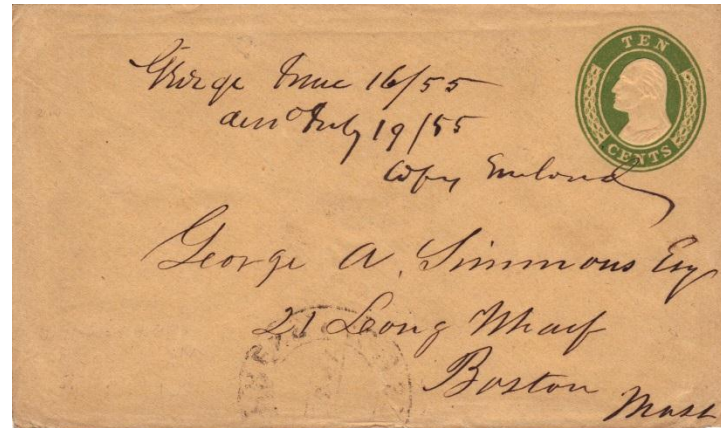 TEN
CENTS
George June 16/55
ansd July 19/55
Copy Enclosed
George A. Simmons Esq
21 Long Wharf
Boston
Mass